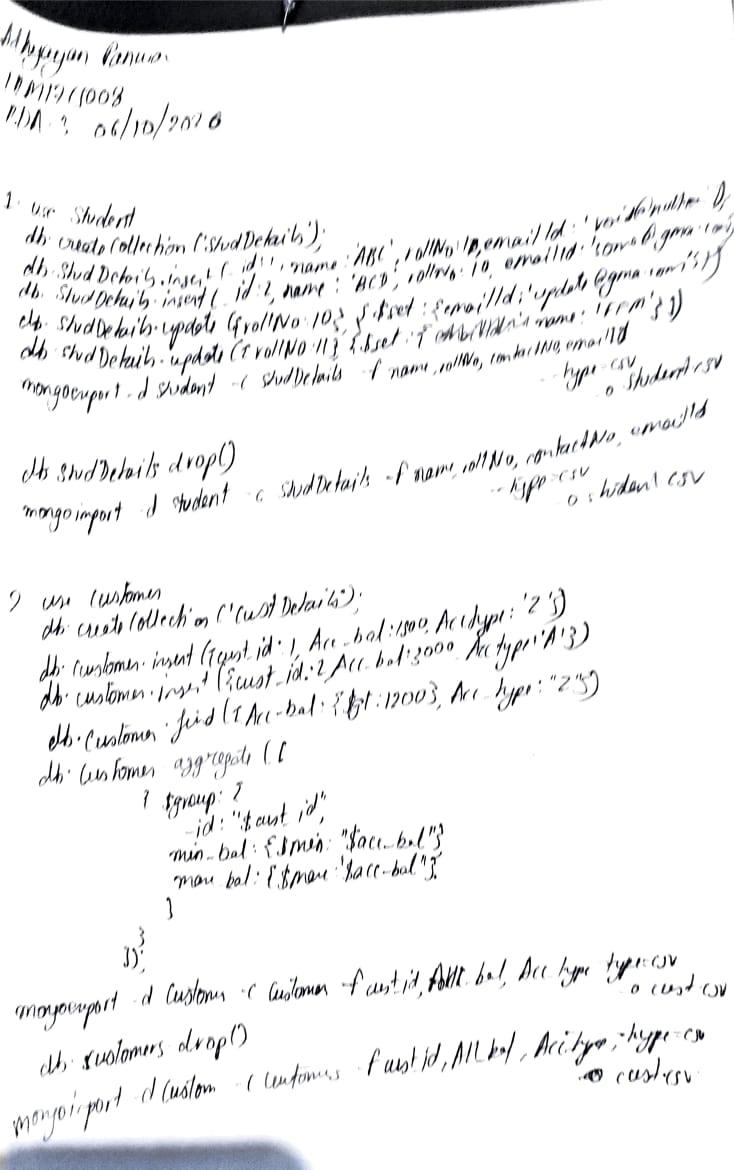 Adhyayan Panwar
06/10/2020
1. use Student
db. createCollection ('StudDetails');
db. StudDetails. insert ( id: 1, name : 'ABC', rollNo: emailId :
db. StudDetails. insert ( id: 2, name : 'BCD', rollNo: 10, emailId:
db. StudDetails. update ({rollNo: 10}, {$set : {emailId: 'update@gma
db StudDetails. update ({rollNo: 11} {$set : { name:
mongoexport -d student -c StudDetails -f name, rollNo, contactNo, emailId
--type=csv
o student.csv
db StudDetails drop()
mongoimport d student c StudDetails -f name, rollNo, contactNo, emailId
--type=csv
o student csv
2 use Customer
db. createCollection ('CustDetails');
db. Customer. insert ({cust_id: 1, Acc_bal: 1500, Acc type: 'Z'})
db. customer. insert ({cust_id: 2 Acc_bal: 3000 Acc type: 'A'})
db. Customer. find ({Acc-bal: {$gt: 1200}, Acc_type: "Z"})
db. Customer aggregate ([
{ $group: {
_id: "$cust_id",
min_bal: {$min: "$acc_bal"}
max bal: {$max "$acc-bal"}
}
}
]);
mongoexport -d Customer -c Customer -f cust id, bal, Acc type type=csv
o cust csv
db. customers drop()
mongoimport d Custom -c Customers f cust id, bal, Acc type, --type=csv
o cust.csv